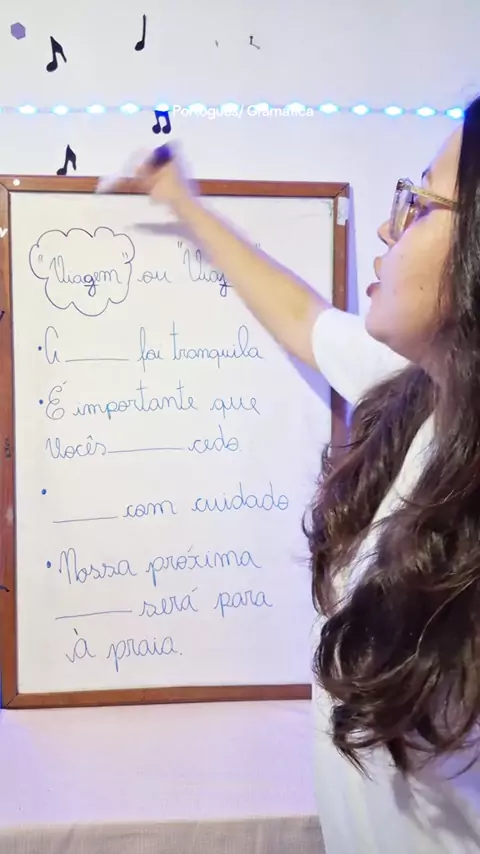 Português/ Gramática
"Viagem" ou "Viaj
• A ______ foi tranquila
• É importante que
vocês ______ cedo.
• ______ com cuidado
• Nossa próxima
______ será para
à praia.